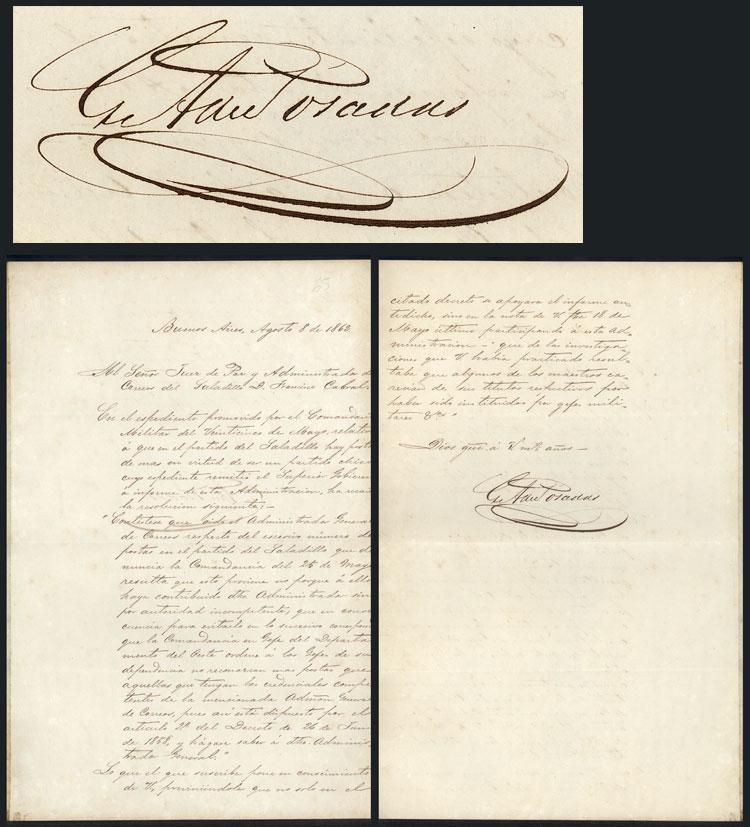 Gs. A de Posadas
Buenos Aires, Agosto 8 de 1862
Al Señor Juez de Paz y Administrador de
Correos del Saladillo D. Francisco Cabral
En el espediente promovido por el Comandan
Militar del Veinticinco de Mayo, relativ
à que en el partido del Saladillo hay posta
de mas en virtud de ser un partido chico
cuyo espediente remitió el Superior Gobiern
à informe de esta Administracion, ha recai
la resolucion siguiente:—
"Contéstese que oido el Administrador General
de Correos respecto del escesivo número de
postas en el partido del Saladillo que de
nuncia la Comandancia del 25 de Mayo
resulta que esto proviene no porque à ello
haya contribuido dho Administrador sin
por autoridad incompetente, que en conse
cuencia para evitarlo en lo sucesivo correspon
que la Comandancia en Gefe del Departa
mento del Oeste ordene à los Gefes de su
dependencia no reconozcan mas postas que
aquellas que tengan las credenciales compe
tentes de la mencionada Admon General
de Correos, pues asi está dispuesto por el
articulo 2º del Decreto de 26 de Juni
de 1858, y hágase saber à dho Adminis
trador General."
Lo que el que suscribe pone en conocimiento
de V, previniéndole que no solo en el
citado decreto se apoyara el informe an
tedicho, sino en la nota de V fha 18 de
Mayo último participando à esta Ad
ministracion que de las investiga
ciones que V habia practicado resul
taba que algunos de los maestros ca
recian de sus titulos respectivos por
haber sido instituidos por gefes mili
tares &a"
Dios gue à V ms años—
Gs. A de Posadas